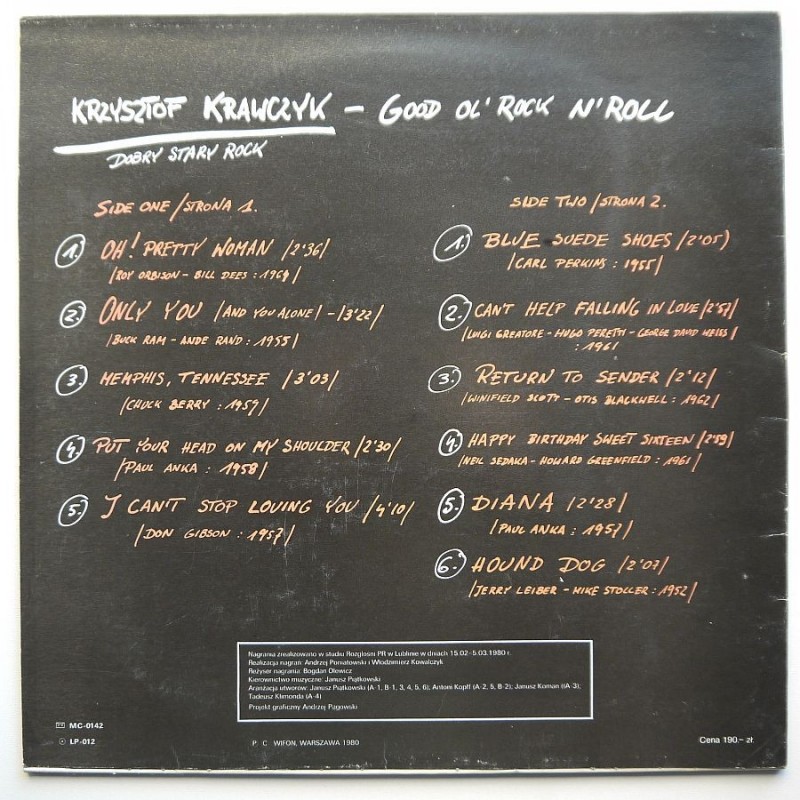 KRZYSZTOF KRAWCZYK – GOOD OL' ROCK N' ROLL
DOBRY STARY ROCK
SIDE ONE /STRONA 1.
1. OH! PRETTY WOMAN /2'36/
/ROY ORBISON – BILL DEES : 1964/
2. ONLY YOU /AND YOU ALONE/ – /3'22/
/BUCK RAM – ANDE RAND : 1955/
3. MEMPHIS, TENNESSEE /3'03/
/CHUCK BERRY : 1959/
4. PUT YOUR HEAD ON MY SHOULDER /2'30/
/PAUL ANKA : 1958/
5. I CAN'T STOP LOVING YOU /4'10/
/DON GIBSON : 1957/
SIDE TWO /STRONA 2.
1. BLUE SUEDE SHOES /2'05/
/CARL PERKINS : 1955/
2. CAN'T HELP FALLING IN LOVE /2'57/
/LUIGI GREATORE – HUGO PERETTI – GEORGE DAVID WEISS/
: 1961
3. RETURN TO SENDER /2'12/
/WINIFIELD SCOTT – OTIS BLACKWELL : 1962/
4. HAPPY BIRTHDAY SWEET SIXTEEN /2'59/
/NEIL SEDAKA – HOWARD GREENFIELD : 1961/
5. DIANA /2'28/
/PAUL ANKA : 1957/
6. HOUND DOG /2'07/
/JERRY LEIBER – MIKE STOLLER : 1952/
Nagrania zrealizowano w studiu Rozgłośni PR w Lublinie w dniach 15.02–5.03.1980 r.
Realizacja nagrań: Andrzej Poniatowski i Włodzimierz Kowalczyk
Reżyser nagrania: Bogdan Olewicz
Kierownictwo muzyczne: Janusz Piątkowski
Aranżacja utworów: Janusz Piątkowski (A-1, B-1, 3, 4, 5, 6); Antoni Kopff (A-2, 5, B-2); Janusz Koman (A-3);
Tadeusz Klimonda (A-4)
Projekt graficzny Andrzej Pągowski
MC-0142
LP-012
P C WIFON, WARSZAWA 1980
Cena 190.– zł